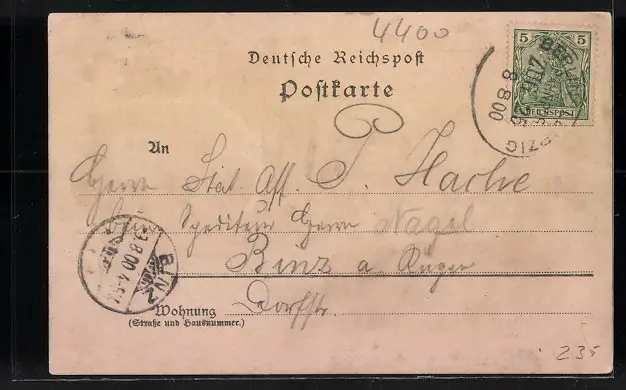 4400
Deutsche Reichspost
Postkarte
5 5
REICHSPOST
BERLIN LEIPZIG
ZUG
8 8 00
An
Herrn Stat. Ass. P. Hache
beim Spediteur Herrn Nagel
Binz a Rügen
BINZ
9.8.00. 4-5N.
Wohnung Dorfstr.
(Straße und Hausnummer.)
235